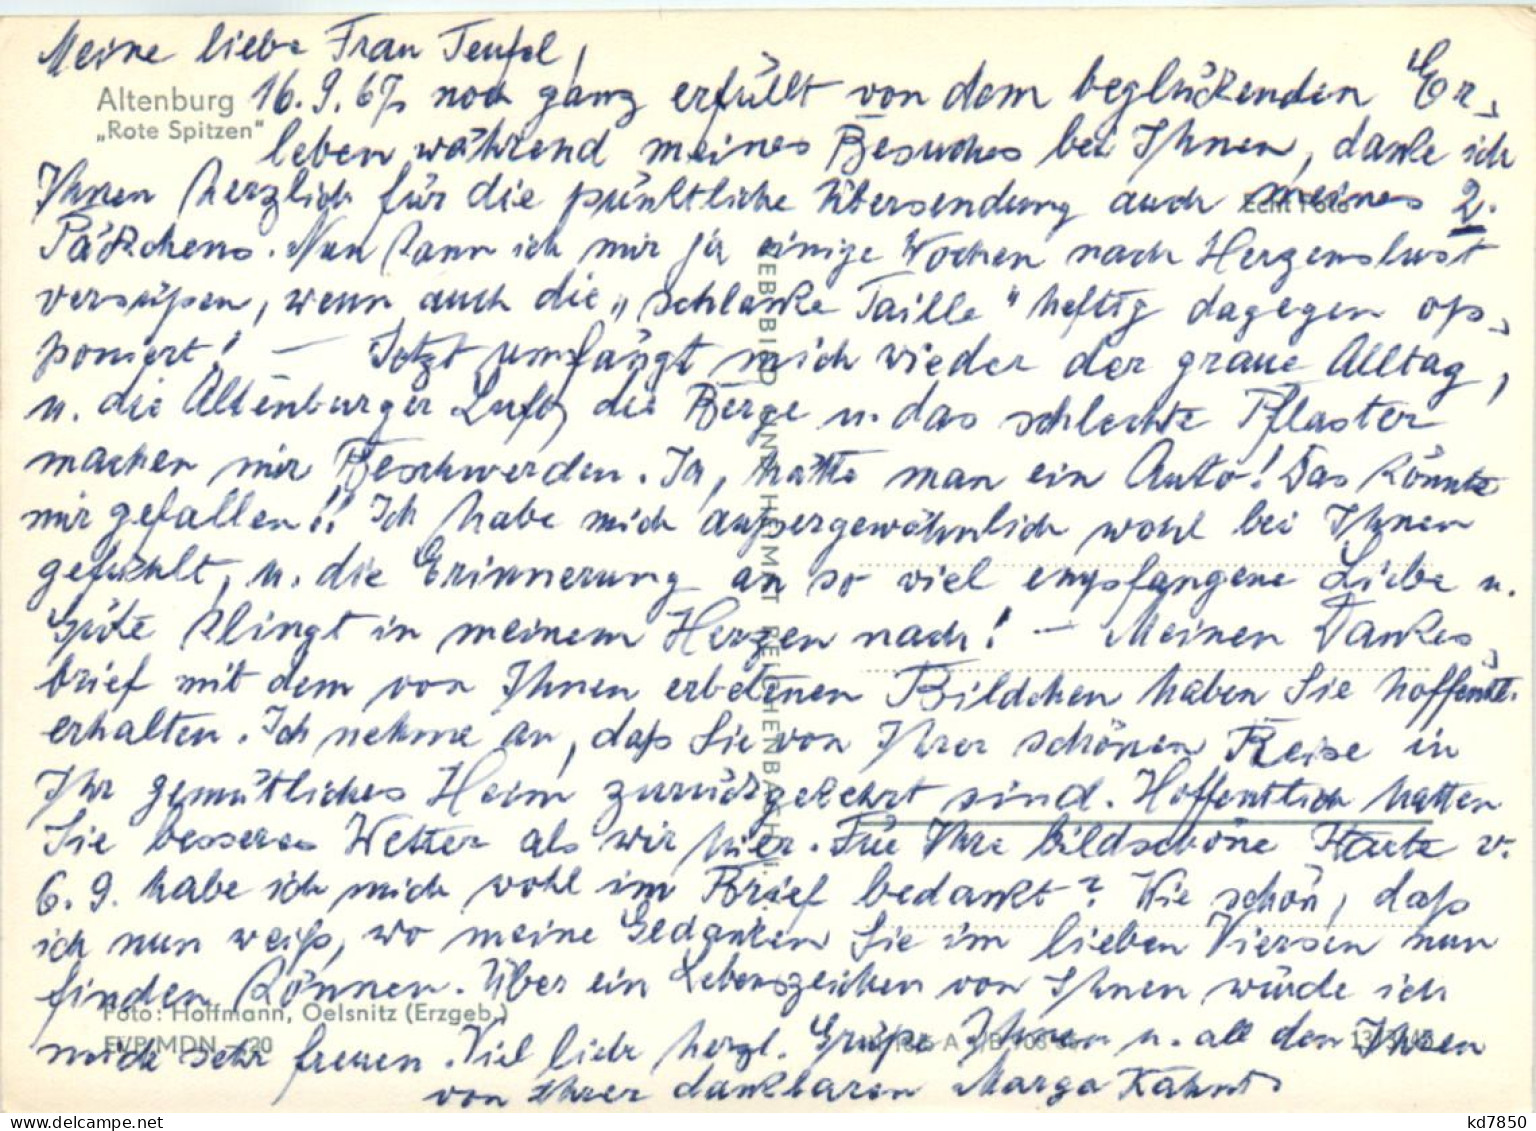 Meine liebe Frau Teufel,
Altenburg
16.9.67, noch ganz erfüllt von dem beglückenden Er-
„Rote Spitzen"
leben während meines Besuches bei Ihnen, danke ich
Ihnen herzlich für die pünktliche Übersendung auch meines 2.
Echt Foto
Päckchens. Nun kann ich mir ja einige Wochen nach Herzenslust
versüßen, wenn auch die „schlanke Taille" heftig dagegen op-
poniert! — Jetzt umfängt mich wieder der graue Alltag,
u. die Altenburger Luft, die Berge u. das schlechte Pflaster
machen mir Beschwerden. Ja, hätte man ein Auto! Das könnte
mir gefallen!! Ich habe mich außergewöhnlich wohl bei Ihnen
gefühlt, u. die Erinnerung an so viel empfangene Liebe u.
Güte klingt in meinem Herzen nach! — Meinen Dankes-
brief mit dem von Ihnen erbetenen Bildchen haben Sie hoffentl.
erhalten. Ich nehme an, daß Sie von Ihrer schönen Reise in
Ihr gemütliches Heim zurückgekehrt sind. Hoffentlich hatten
Sie besseres Wetter als wir hier. Für Ihre bildschöne Karte v.
6.9. habe ich mich wohl im Brief bedankt? Wie schön, daß
ich nun weiß, wo meine Gedanken Sie im lieben Viersen nun
finden können. Über ein Lebenszeichen von Ihnen würde ich
Foto: Hoffmann, Oelsnitz (Erzgeb.)
mich sehr freuen. Viel liebe herzl. Grüße Ihnen u. all den Ihren
EVP MDN -,20
von Ihrer dankbaren Marga Kahnt
BILD UND HEIMAT REICHENBACH i.
kd7850